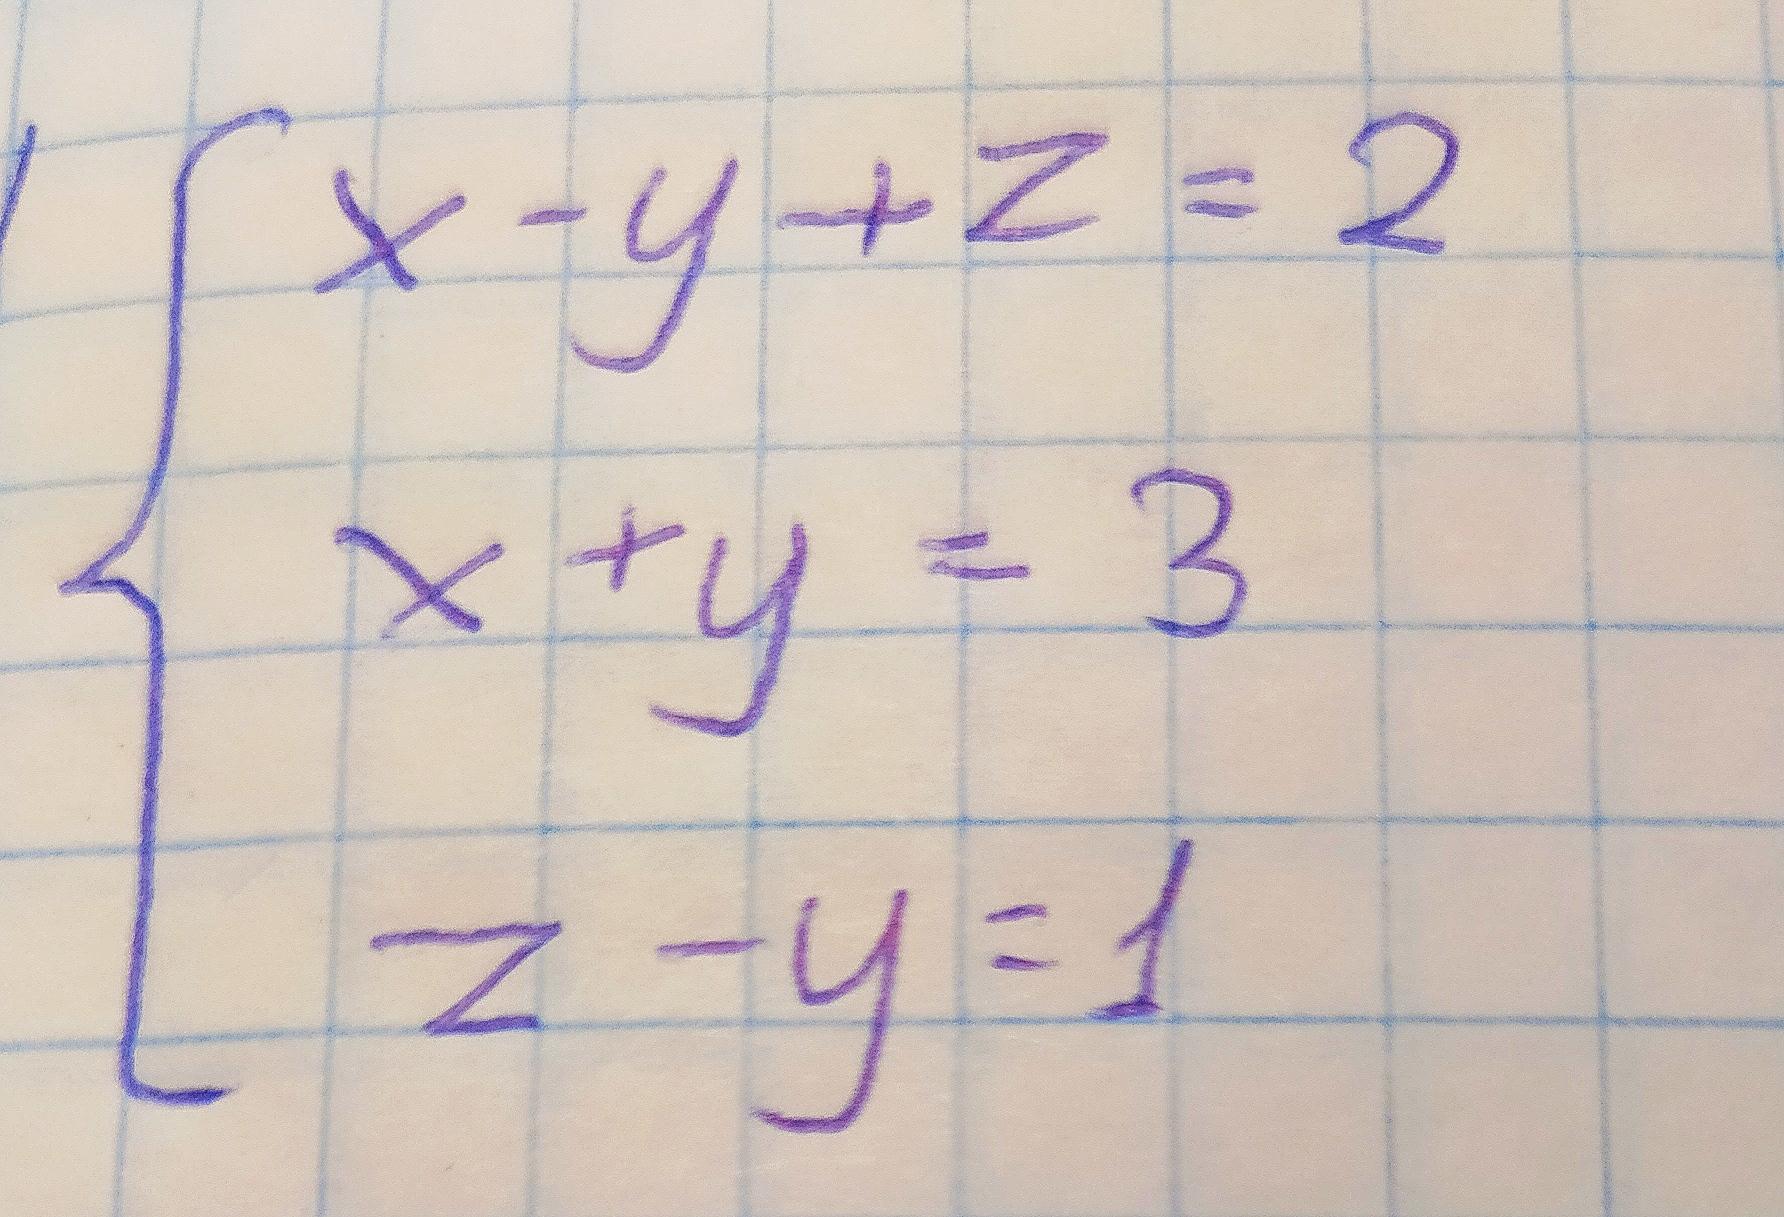 x - y + z = 2
x + y = 3
z - y = 1